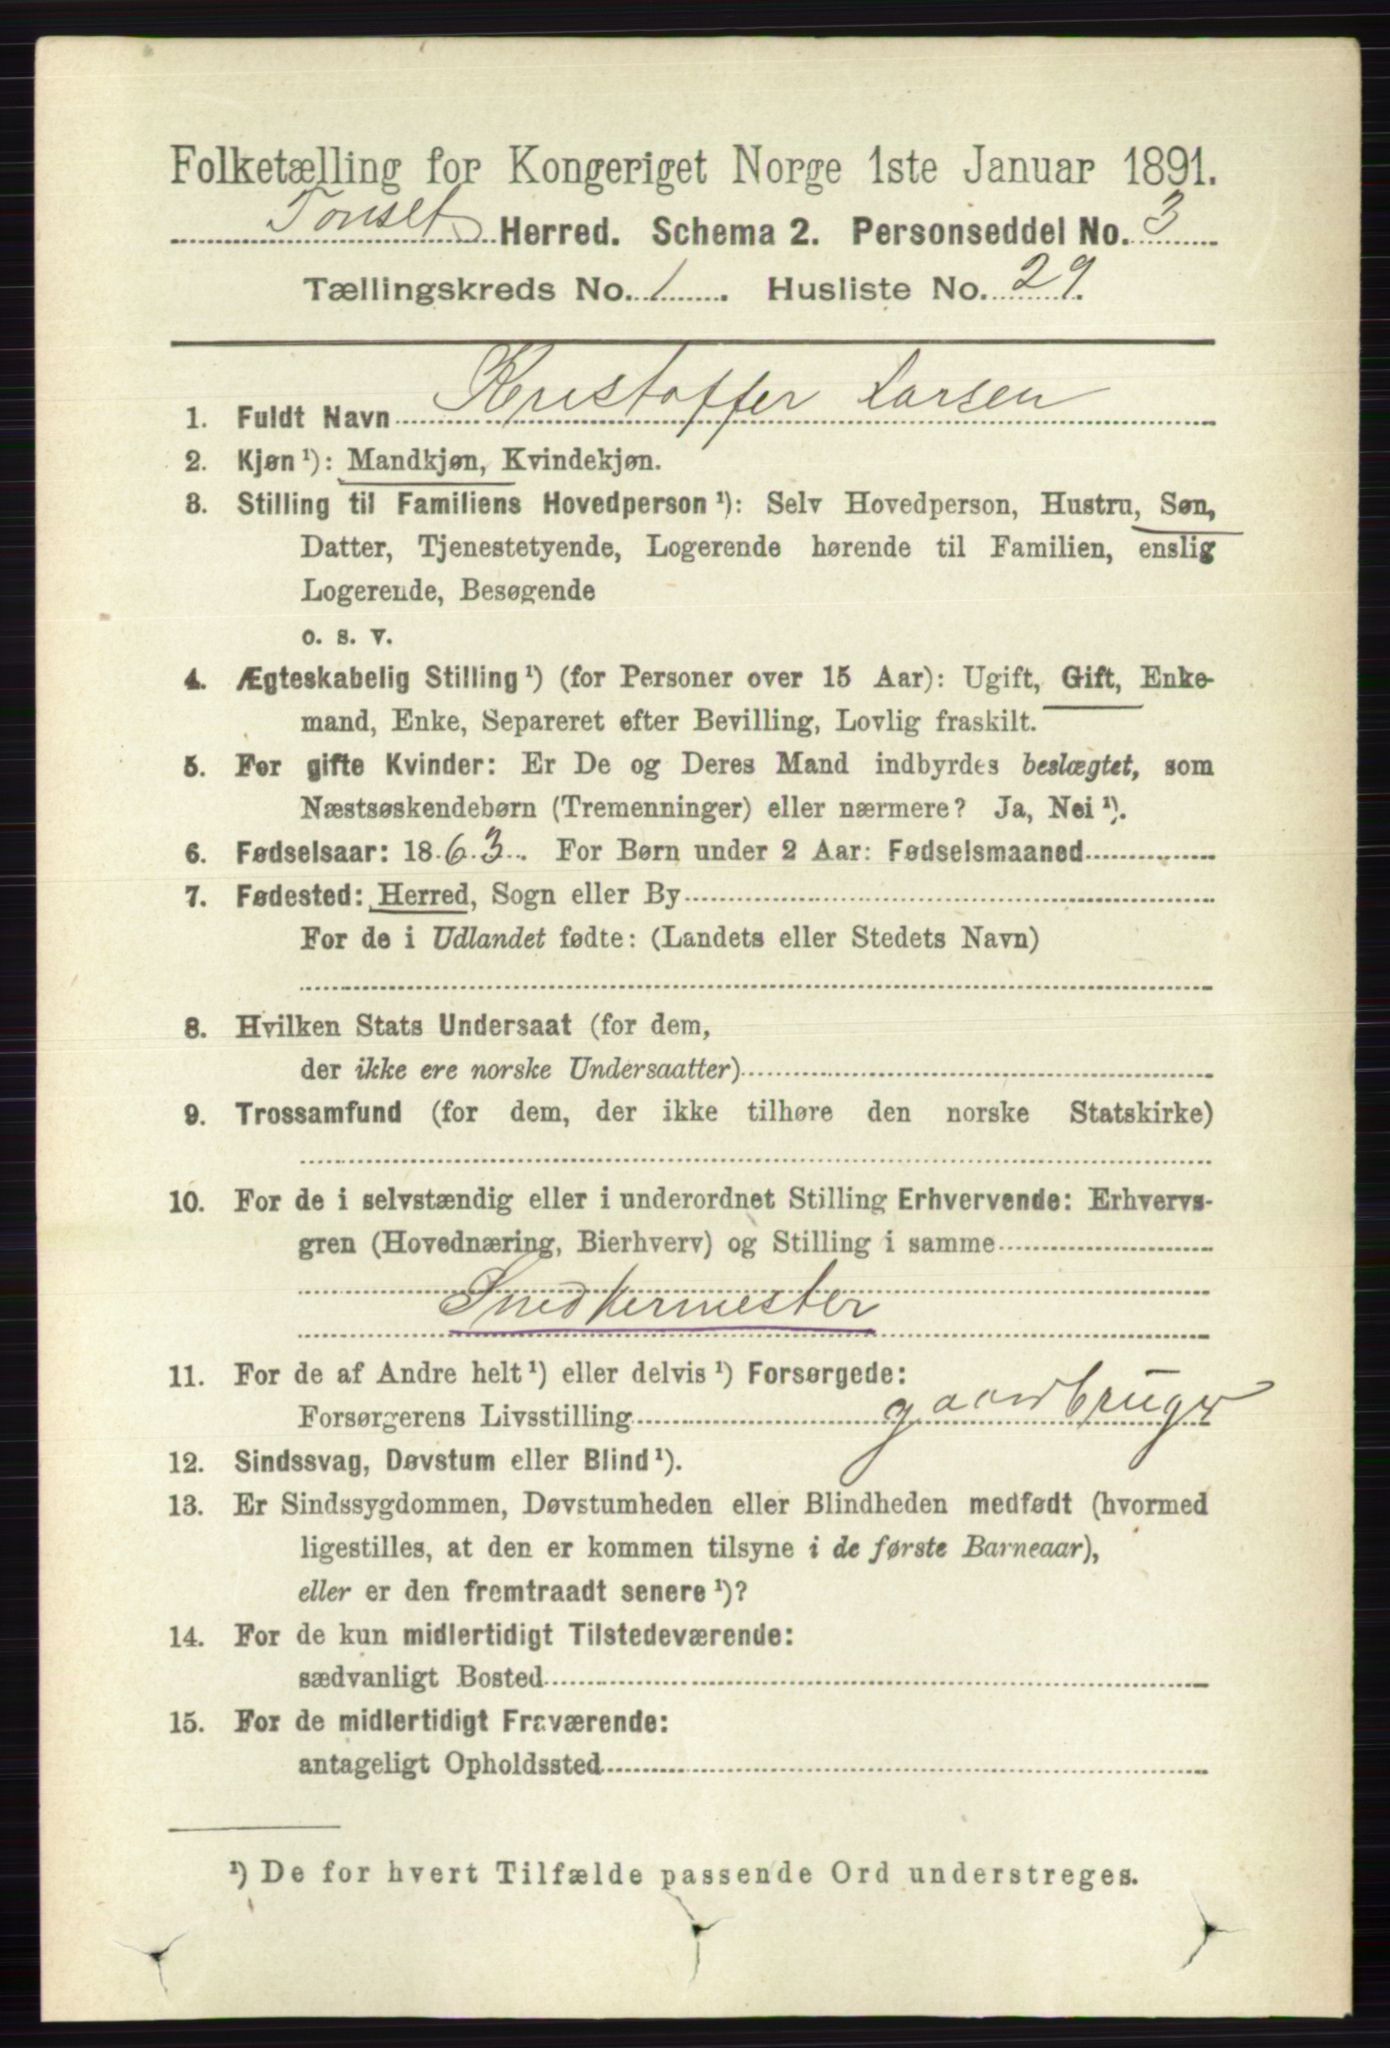 Folketælling for Kongeriget Norge 1ste Januar 1891.
Tonset Herred. Schema 2. Personseddel No. 3
Tællingskreds No. 1. Husliste No. 29.
1. Fuldt Navn Kristoffer Larsen
2. Kjøn ¹): Mandkjøn, Kvindekjøn.
3. Stilling til Familiens Hovedperson ¹): Selv Hovedperson, Hustru, Søn,
Datter, Tjenestetyende, Logerende hørende til Familien, enslig
Logerende, Besøgende
o. s. v.
4. Ægteskabelig Stilling ¹) (for Personer over 15 Aar): Ugift, Gift, Enke-
mand, Enke, Separeret efter Bevilling, Lovlig fraskilt.
5. For gifte Kvinder: Er De og Deres Mand indbyrdes beslægtet, som
Næstsøskendebørn (Tremenninger) eller nærmere? Ja, Nei ¹).
6. Fødselsaar: 1863. For Børn under 2 Aar: Fødselsmaaned
7. Fødested: Herred, Sogn eller By
For de i Udlandet fødte: (Landets eller Stedets Navn)
8. Hvilken Stats Undersaat (for dem,
der ikke ere norske Undersaatter)
9. Trossamfund (for dem, der ikke tilhøre den norske Statskirke)
10. For de i selvstændig eller i underordnet Stilling Erhvervende: Erhvervs-
gren (Hovednæring, Bierhverv) og Stilling i samme
Snedkermester
11. For de af Andre helt ¹) eller delvis ¹) Forsørgede:
Forsørgerens Livsstilling gaardbruger
12. Sindssvag, Døvstum eller Blind ¹).
13. Er Sindssygdommen, Døvstumheden eller Blindheden medfødt (hvormed
ligestilles, at den er kommen tilsyne i de første Barneaar),
eller er den fremtraadt senere ¹)?
14. For de kun midlertidigt Tilstedeværende:
sædvanligt Bosted
15. For de midlertidigt Fraværende:
antageligt Opholdssted
¹) De for hvert Tilfælde passende Ord understreges.